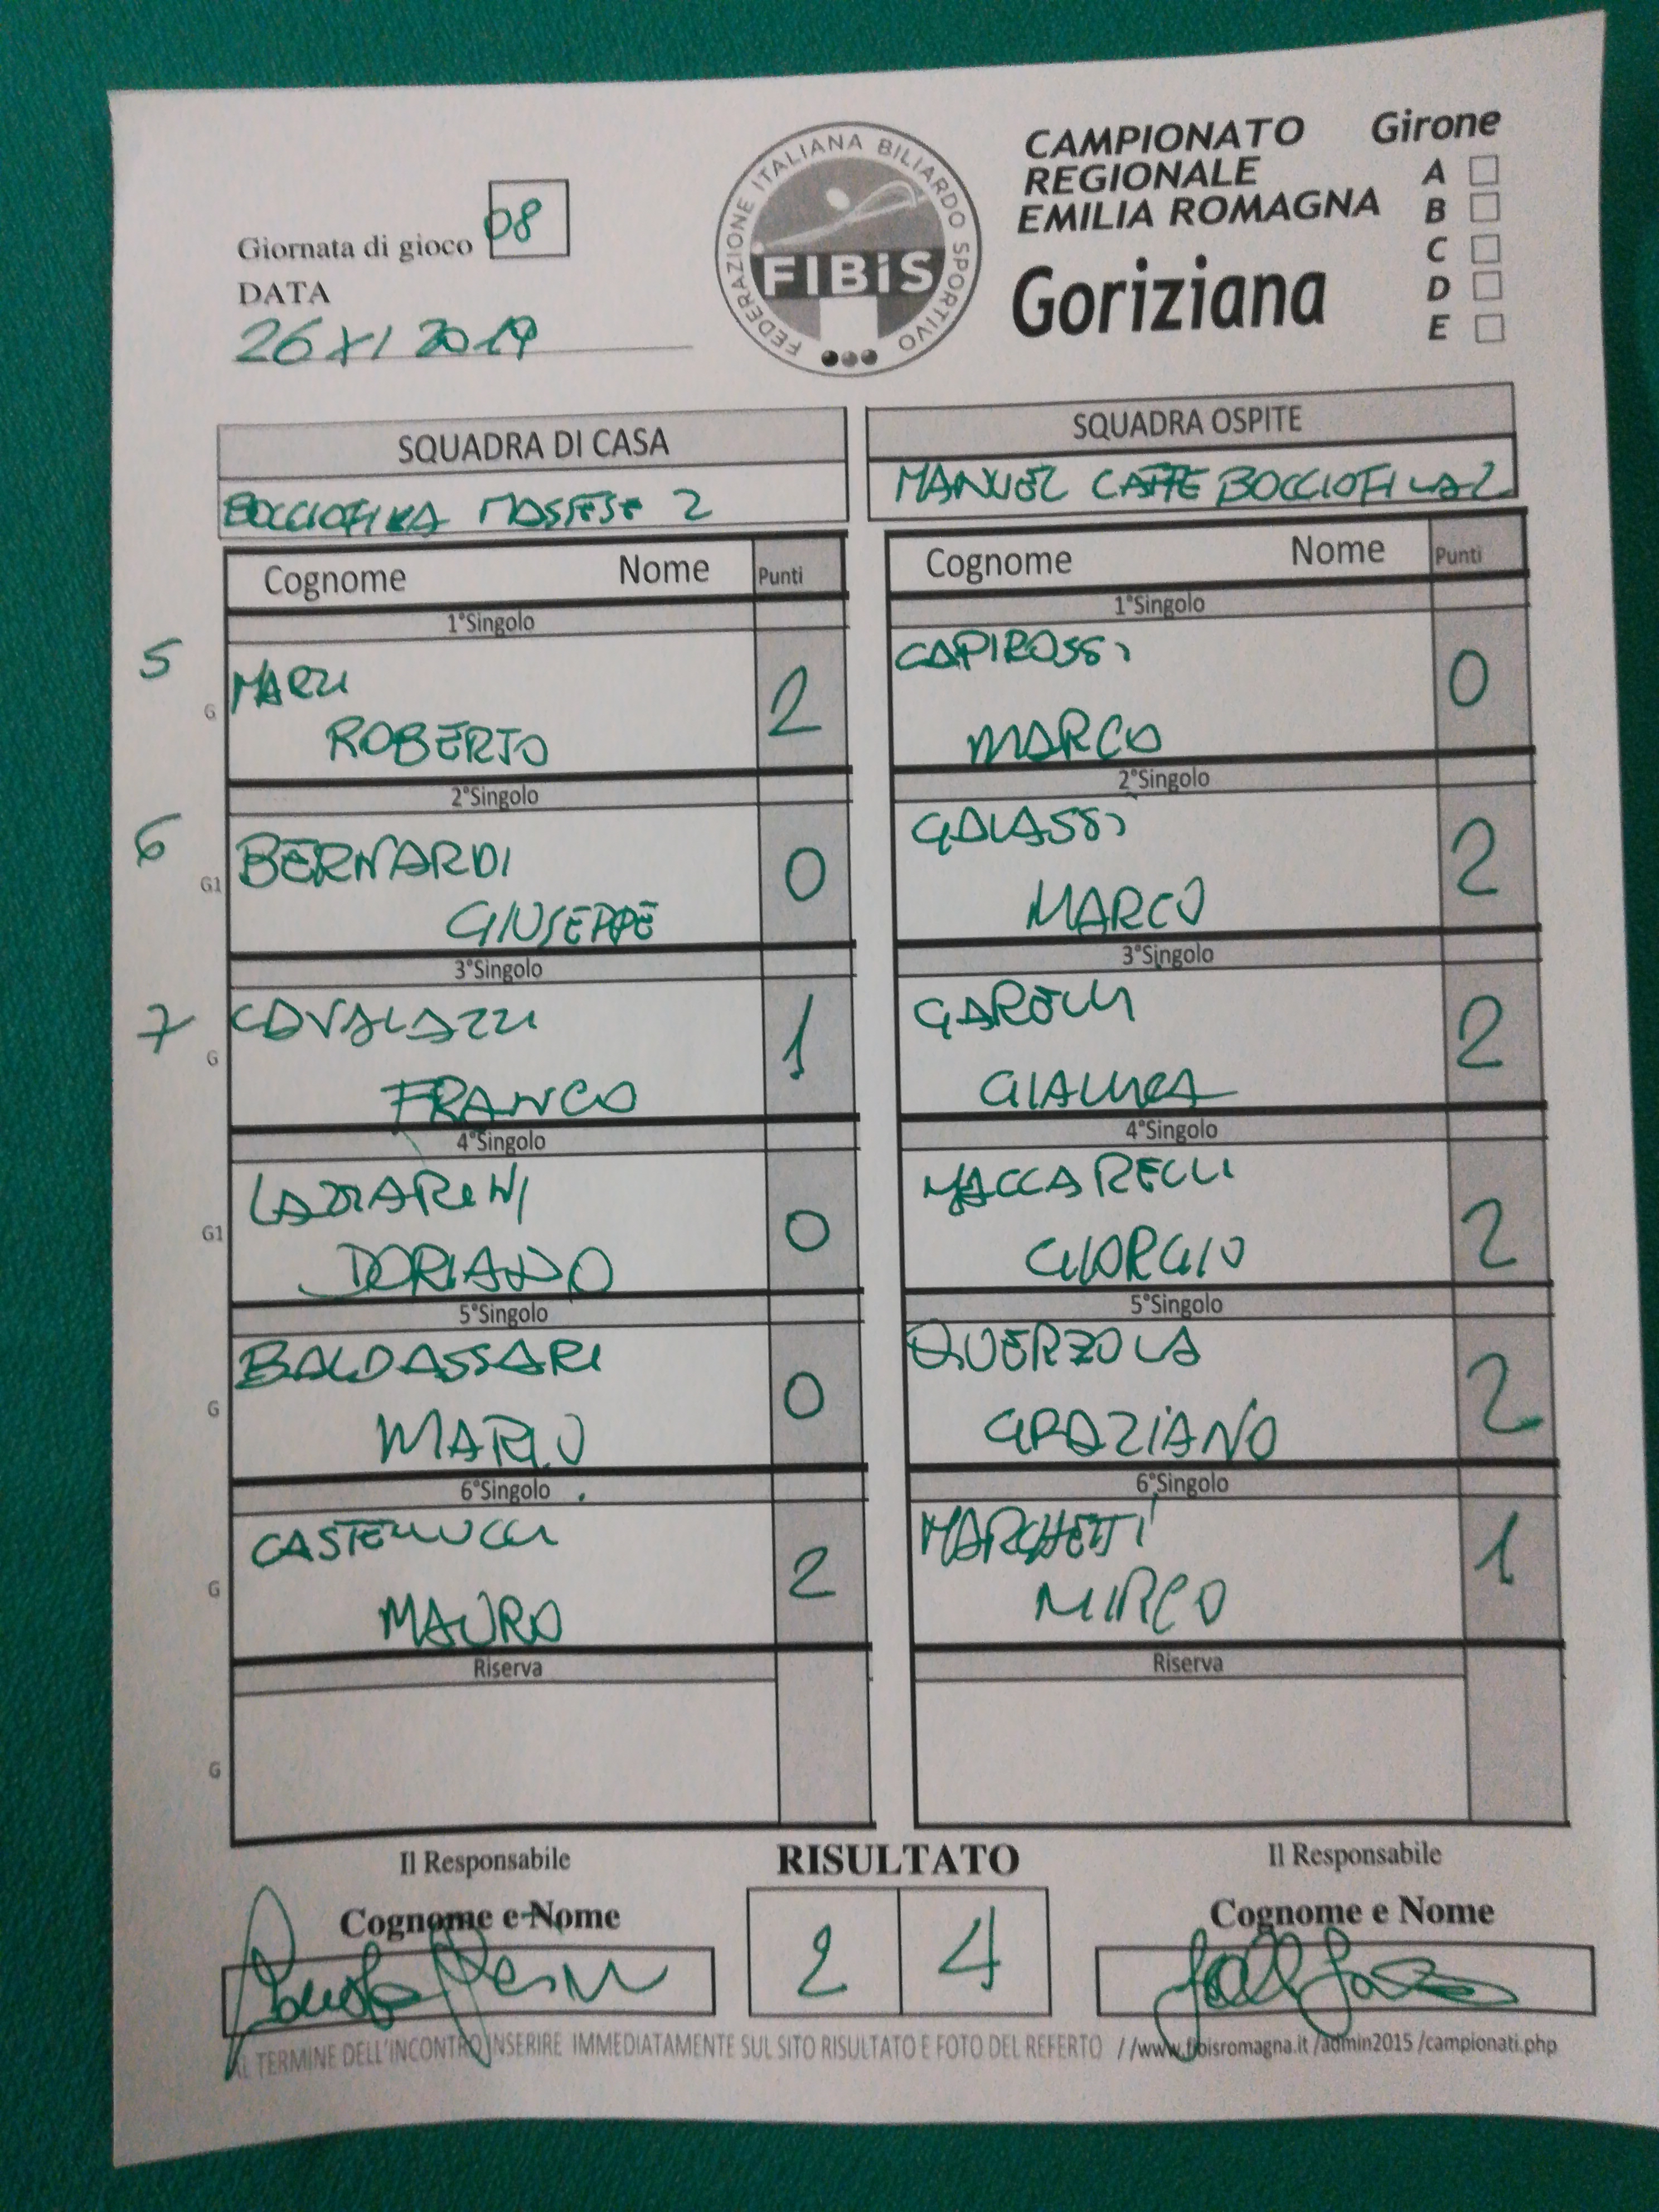 Giornata di gioco 08
DATA
26 XI 2019
FEDERAZIONE ITALIANA BILIARDO SPORTIVO
FIBiS
CAMPIONATO
REGIONALE
EMILIA ROMAGNA
Goriziana
Girone
A
B
C
D
E
SQUADRA DI CASA
BOCCIOFILA MASSESE 2
SQUADRA OSPITE
MANUEL CAFFE BOCCIOFILA 2
Cognome Nome Punti
Cognome Nome Punti
1°Singolo
1°Singolo
5
G
MARZI
ROBERTO
2
CAPIROSSI
MARCO
0
2°Singolo
2°Singolo
6
G1
BERNARDI
GIUSEPPE
0
GALASSI
MARCO
2
3°Singolo
3°Singolo
7
G
CAVALAZZI
FRANCO
1
GARELLI
GIALUCA
2
4°Singolo
4°Singolo
G1
LAZZARINI
DORIANO
0
MACCARELLI
GIORGIO
2
5°Singolo
5°Singolo
G
BALDASSARI
MARIO
0
QUERZOLA
GRAZIANO
2
6°Singolo
6°Singolo
G
CASTELLUCCI
MAURO
2
MARCHETTI
MIRCO
1
Riserva
Riserva
G
Il Responsabile
Cognome e Nome
RISULTATO
2 4
Il Responsabile
Cognome e Nome
AL TERMINE DELL'INCONTRO INSERIRE IMMEDIATAMENTE SUL SITO RISULTATO E FOTO DEL REFERTO //www.fibisromagna.it /admin2015 /campionati.php